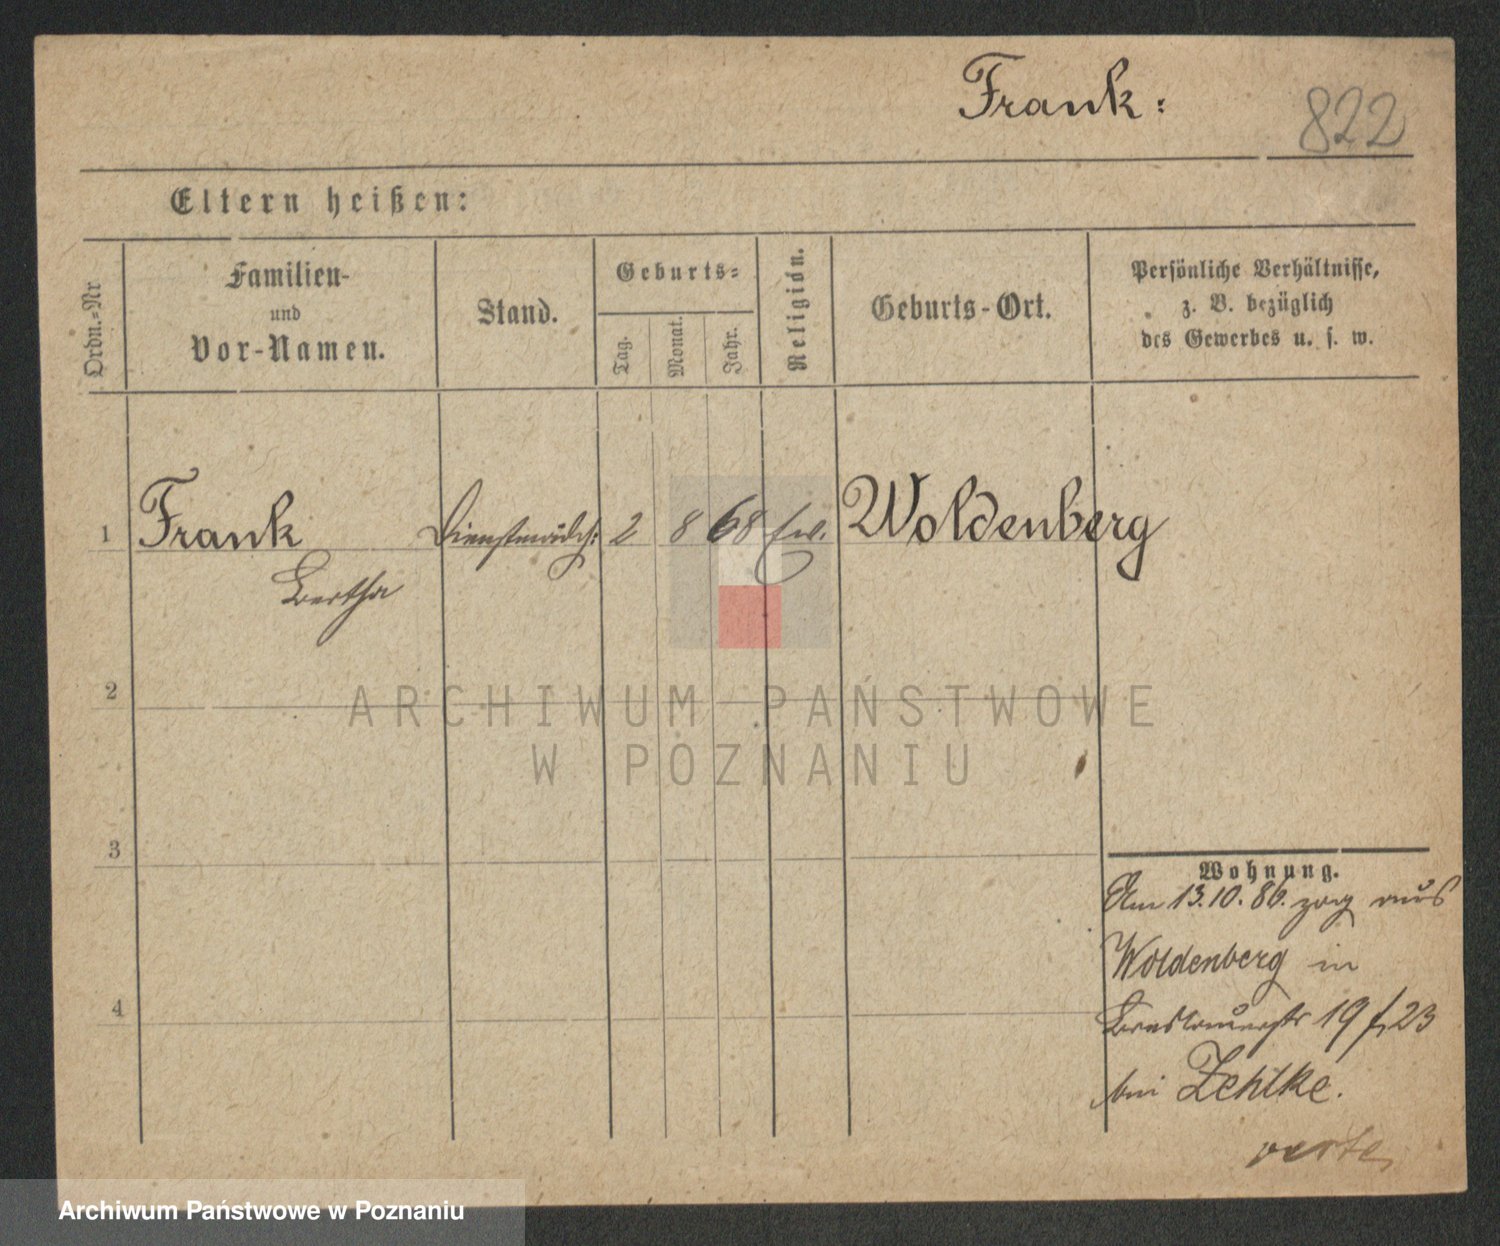 Frank:
822
Eltern heißen:
Ordn.-Nr
Familien-
und
Vor-Namen.
Stand.
Geburts-
Tag.
Monat.
Jahr.
Religion.
Geburts-Ort.
Persönliche Verhältnisse,
z. B. bezüglich
des Gewerbes u. s. w.
1 Frank Dienstmädch: 2 8 68 ev. Woldenberg
Bertha
2
ARCHIWUM PAŃSTWOWE
W POZNANIU
3
4
Wohnung.
Am 13.10.86. zog aus
Woldenberg in
Breslauerstr 19 f, 23
bei Zehlke.
verte
Archiwum Państwowe w Poznaniu